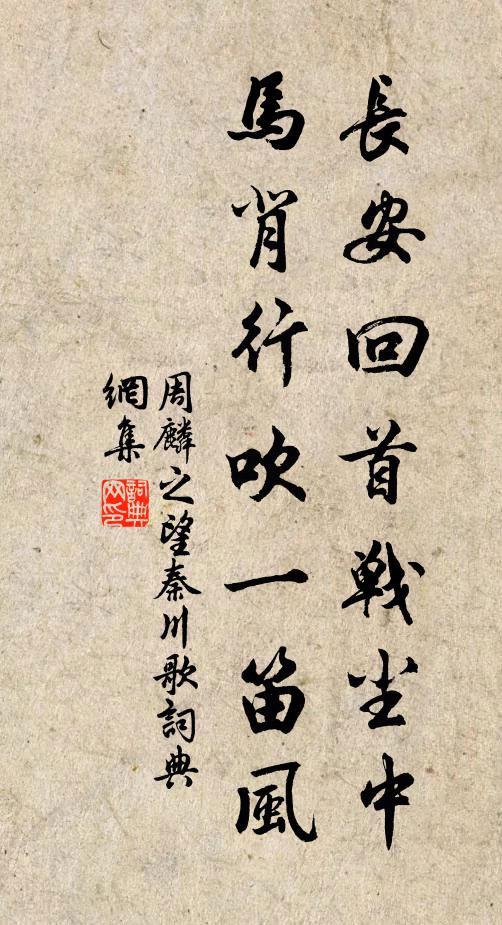 長安回首戰塵中
馬背行吹一笛風
周麟之望秦川歌詞典
網集
詞典
网印